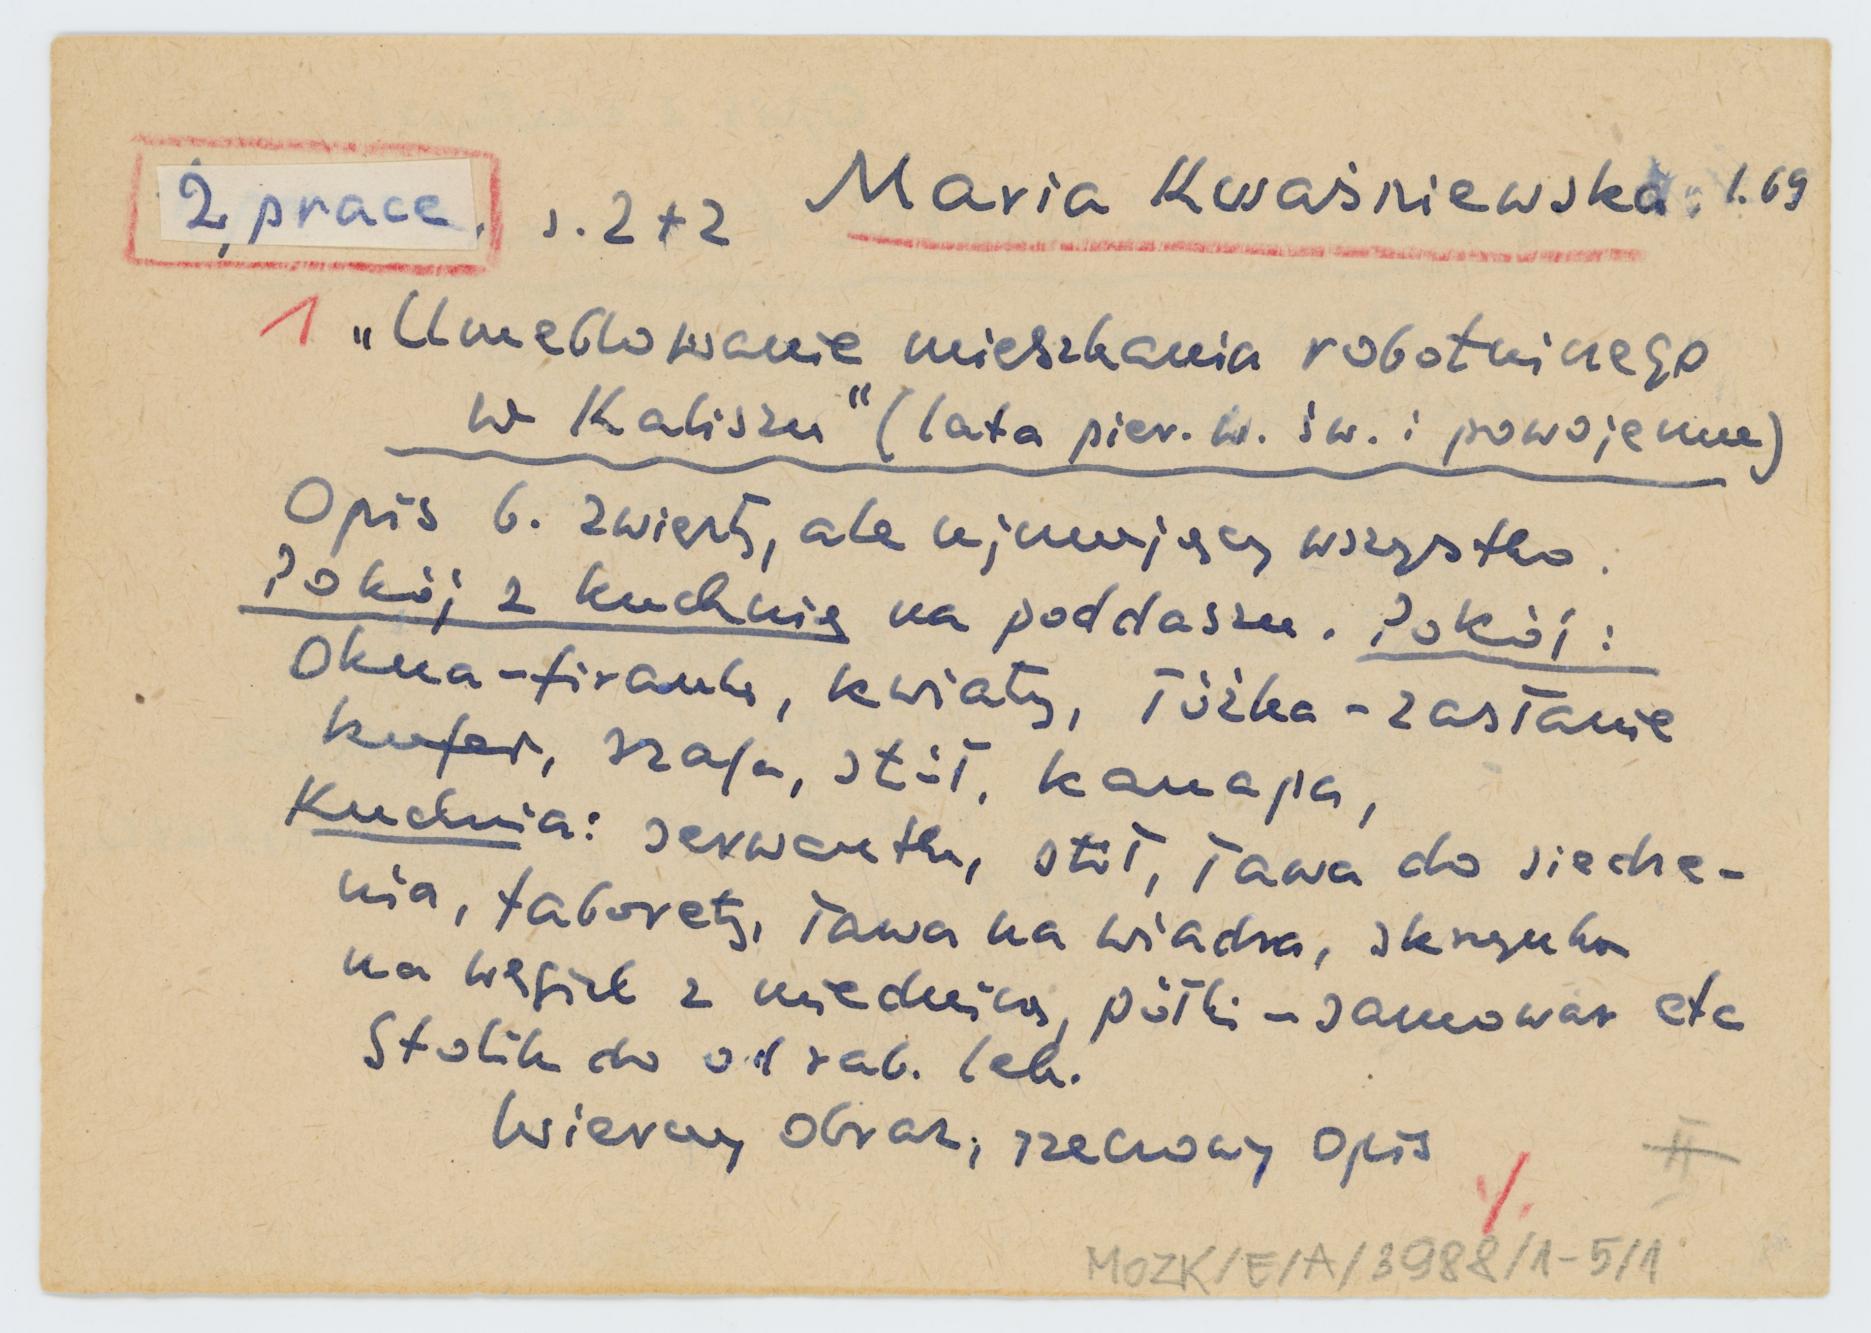 2 prace, s. 2+2 Maria Kwaśniewska, l. 69
1 „Umeblowanie mieszkania robotniczego
w Kaliszu" (lata pier. w. św. i powojenne)
Opis b. zwięzły, ale ujmujący wszystko.
Pokój z kuchnią na poddaszu. Pokój:
Okna - firanki, kwiaty, łóżka - zasłanie
kufer, szafa, stół, kanapa,
Kuchnia: serwantka, stół, ława do siedze-
nia, taborety, ława na wiadra, skrzynka
na węgiel z miednicą, półki - samowar etc
Stolik do odrab. lek.
Wierny obraz, rzeczowy opis
II
./.
MOZK/E/A/3988/1-5/1